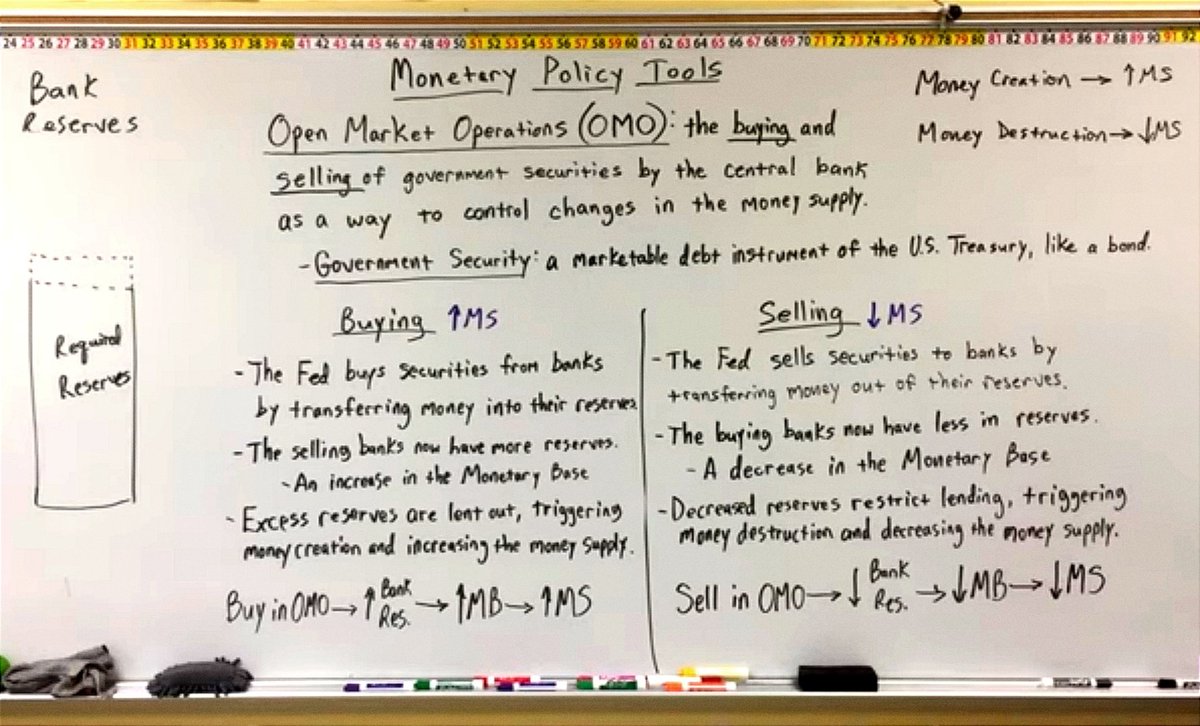 24 25 26 27 28 29 30 31 32 33 34 35 36 37 38 39 40 41 42 43 44 45 46 47 48 49 50 51 52 53 54 55 56 57 58 59 60 61 62 63 64 65 66 67 68 69 70 71 72 73 74 75 76 77 78 79 80 81 82 83 84 85 86 87 88 89 90 91 92
Bank
Reserves
Required
Reserves
Monetary Policy Tools
Money Creation → ↑MS
Money Destruction → ↓MS
Open Market Operations (OMO): the buying and
selling of government securities by the central bank
as a way to control changes in the money supply.
- Government Security: a marketable debt instrument of the U.S. Treasury, like a bond.
Buying ↑MS
- The Fed buys securities from banks
by transferring money into their reserves.
- The selling banks now have more reserves.
- An increase in the Monetary Base
- Excess reserves are lent out, triggering
money creation and increasing the money supply.
Buy in OMO → ↑ Bank Res. → ↑MB → ↑MS
Selling ↓MS
- The Fed sells securities to banks by
transferring money out of their reserves.
- The buying banks now have less in reserves.
- A decrease in the Monetary Base
- Decreased reserves restrict lending, triggering
money destruction and decreasing the money supply.
Sell in OMO → ↓ Bank Res. → ↓MB → ↓MS